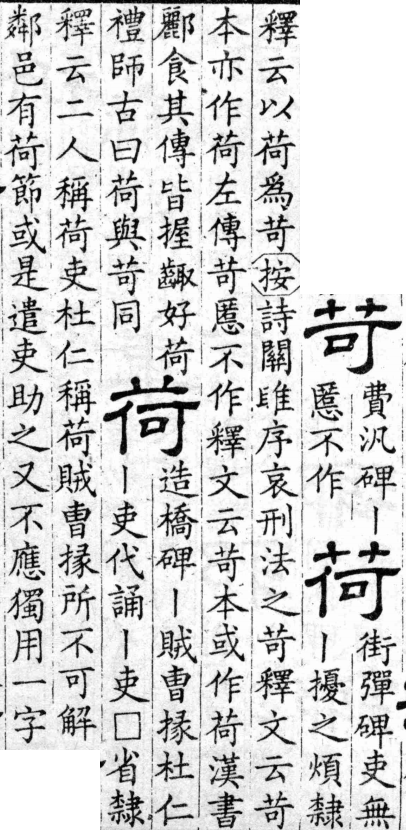 苛
費汎碑丨
慝不作
荷
街彈碑吏無
丨擾之煩隸
釋云以荷爲苛按詩關雎序哀刑法之苛釋文云苛
本亦作荷左傳苛慝不作釋文云苛本或作荷漢書
酈食其傳皆握齱好荷
禮師古曰荷與苛同
荷
造橋碑丨賊曹掾杜仁
丨吏代誦丨吏□省隸
釋云二人稱荷吏杜仁稱荷賊曹掾所不可解
鄰邑有荷節或是遣吏助之又不應獨用一字